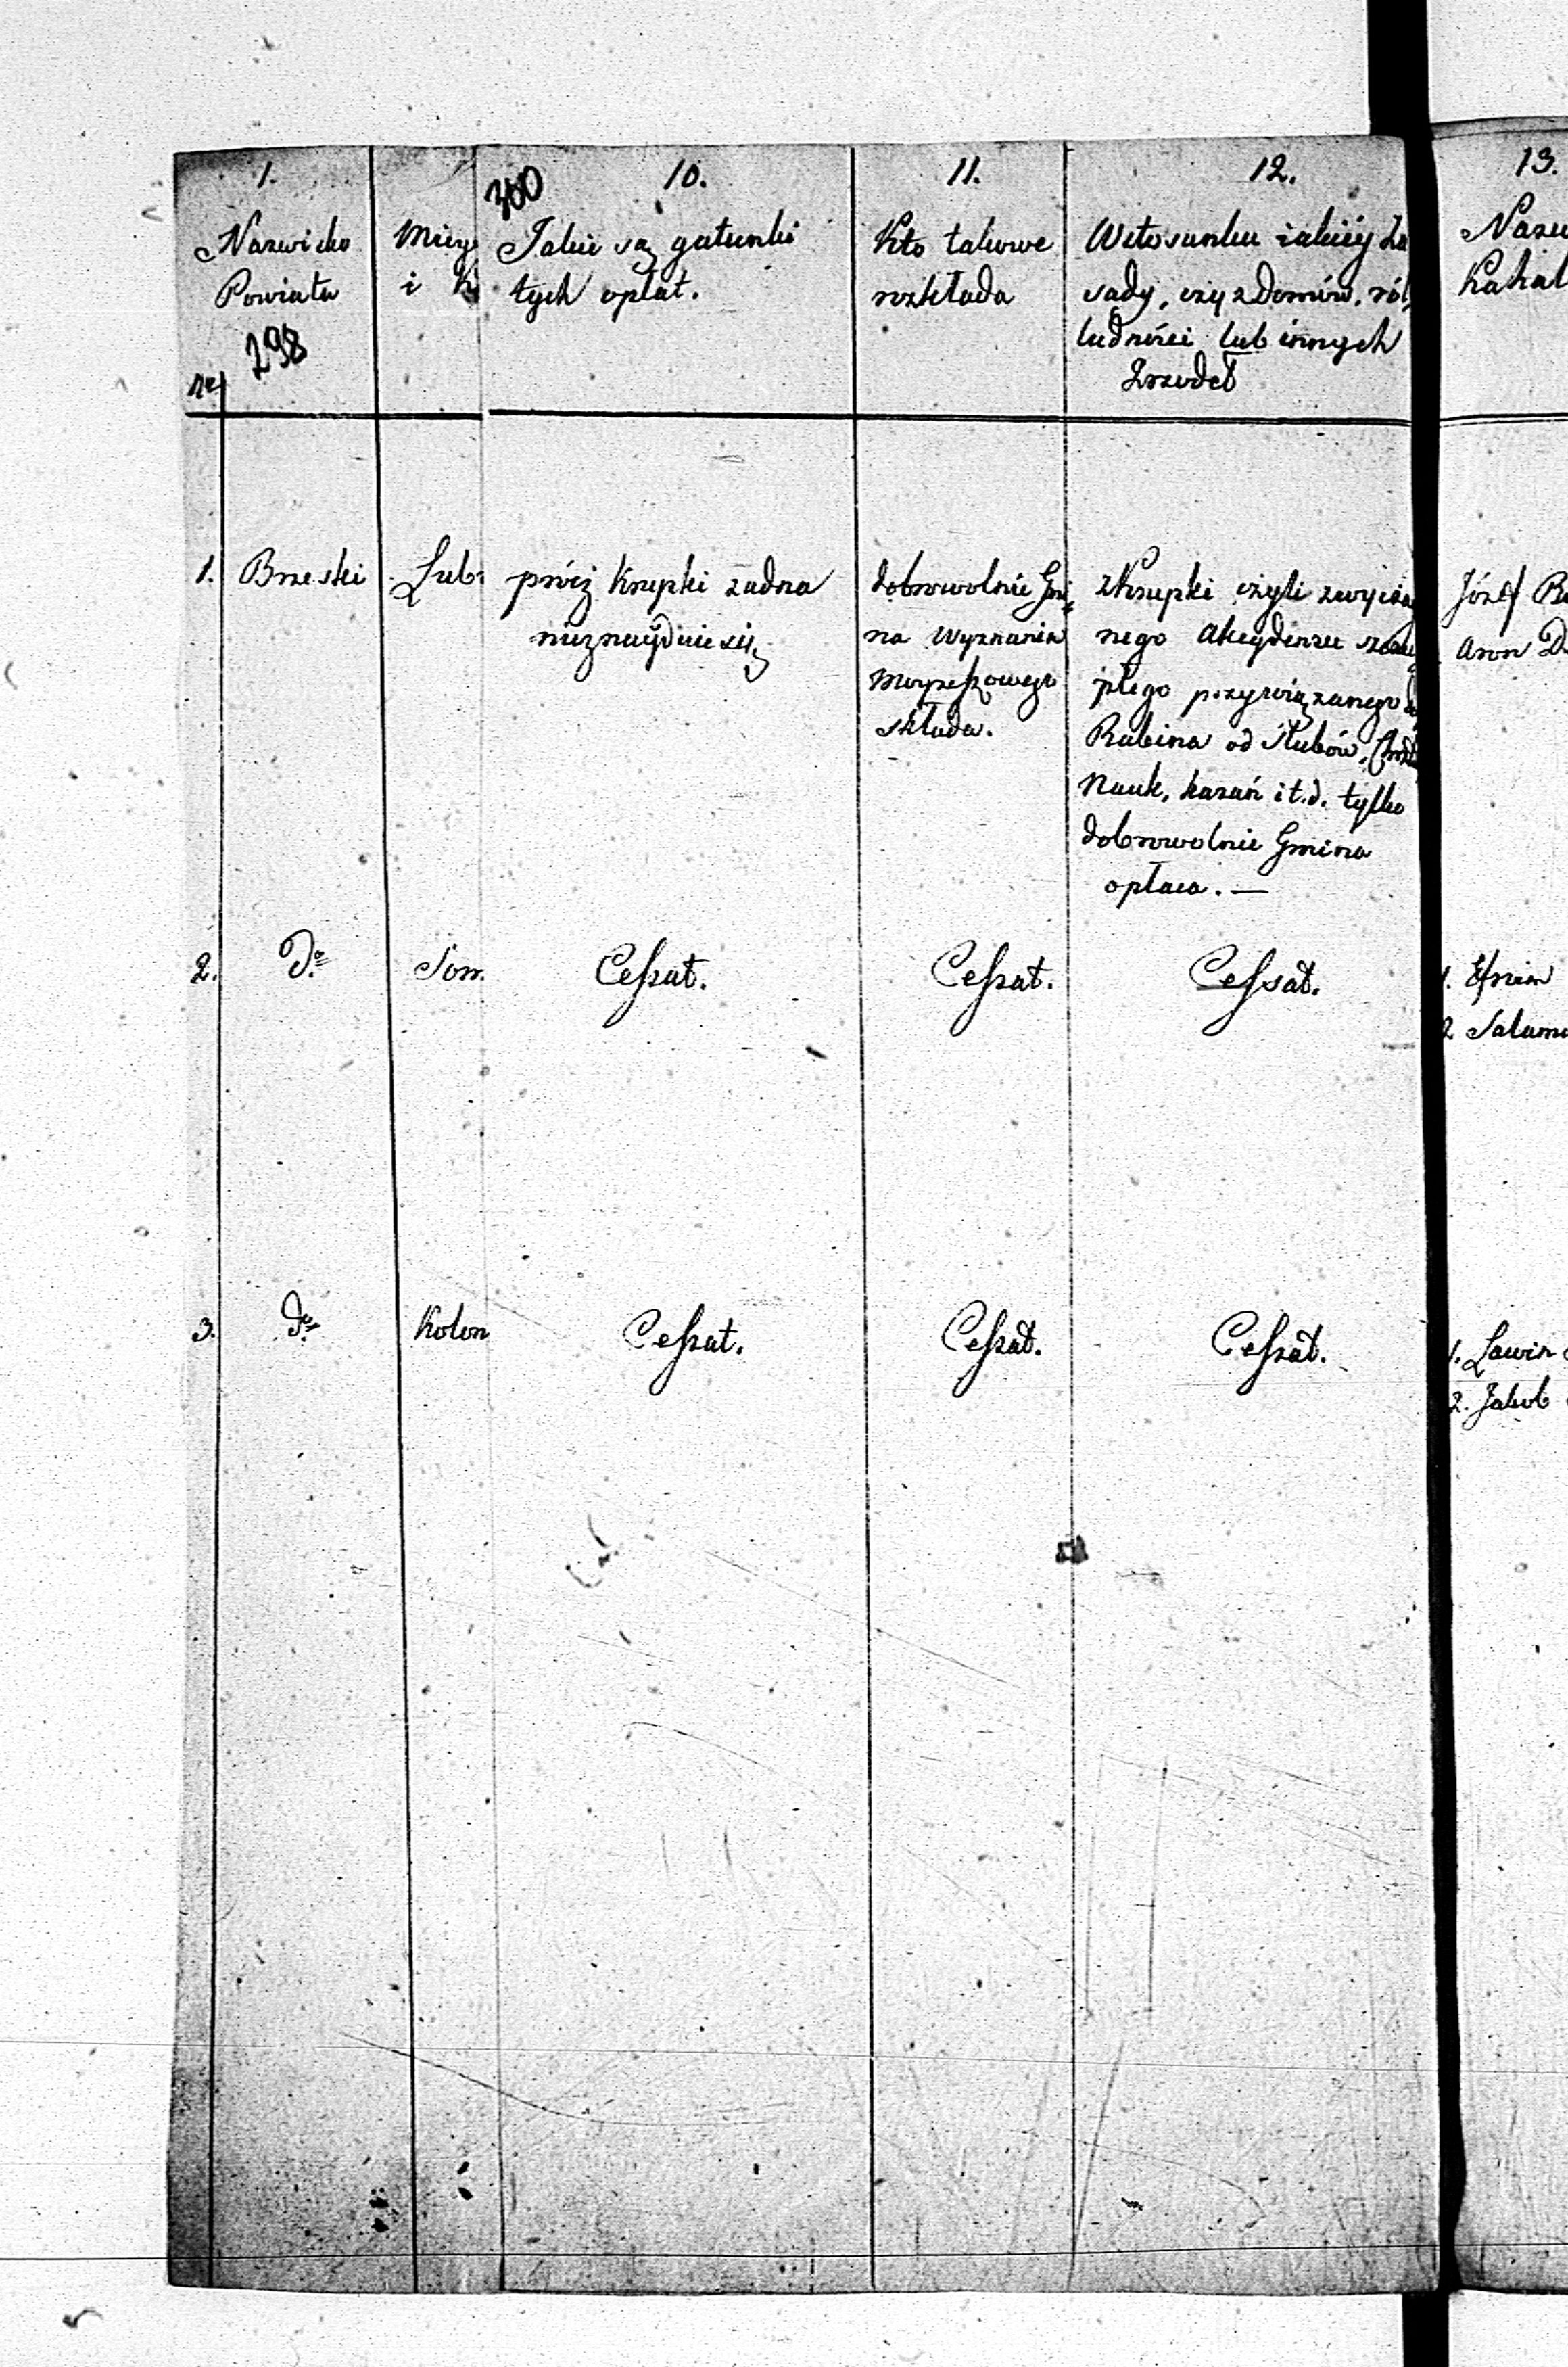 1.
Nazwisko
Powiatu
298
Nro
Miey
i K
300
10.
Jakie są gatunki
tych opłat.
11.
Kto takowe
rozkłada
12.
W stosunku iakiiéy za
sady, czy z Domów, ról,
ludności lub innych
Zrzódeł
13.
Nazw
Kahal
1.
Brzeski
Lub
prócz Krupki żadna
nieznayduie się
dobrowolnie Gmi
na Wyznania
Moyżeszowego
składa.
z Krupki czyli zwycza
nego Akcydensu
płego przywiązanego
Rabina od Ślubów,
Nauk, kazań i t. d. tylko
dobrowolnie Gmina
opłaca. —
Józef B
Aron D
2.
Do
Som
Cessat.
Cessat.
Cessat.
1. Efraim
2 Salamo
3.
do
Kolon
Cessat.
Cessat.
Cessat.
1. Lewin
2. Jakob